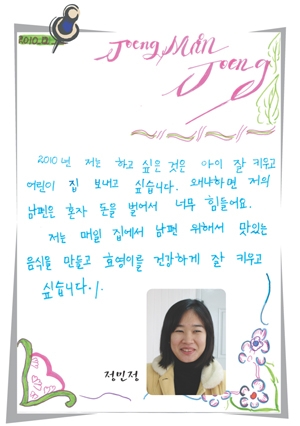 2010.
Joeng Min
Joeng
2010년 저는 하고 싶은 것은 아이 잘 키우고
어린이 집 보내고 싶습니다. 왜냐하면 저의
남편은 혼자 돈을 벌어서 너무 힘들어요.
저는 매일 집에서 남편 위해서 맛있는
음식을 만들고 효영이를 건강하게 잘 키우고
싶습니다./.
정민정